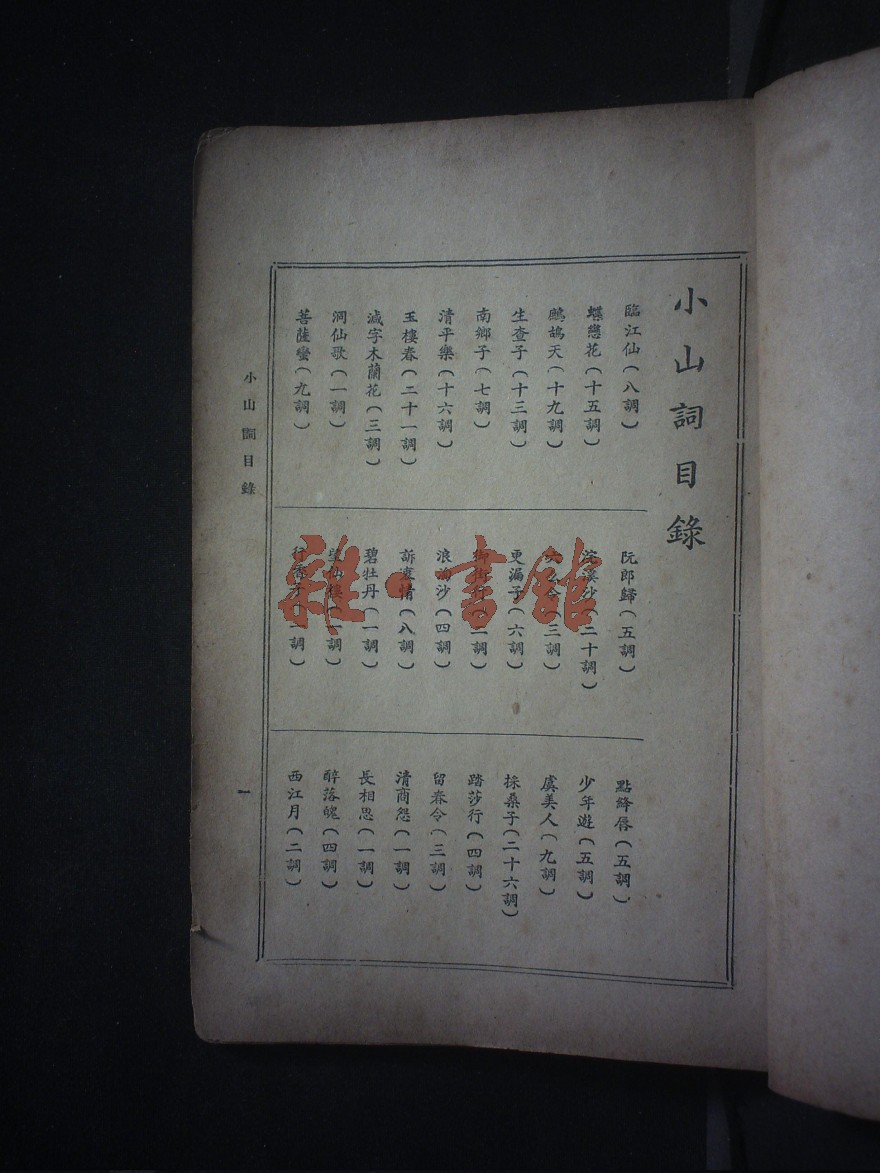 小山詞目錄
臨江仙(八調)
蝶戀花(十五調)
鷓鴣天(十九調)
生查子(十三調)
南鄉子(七調)
清平樂(十六調)
玉樓春(二十一調)
減字木蘭花(三調)
洞仙歌(一調)
菩薩蠻(九調)
阮郎歸(五調)
浣溪沙(二十調)
六么令(三調)
更漏子(六調)
御街行(二調)
浪淘沙(四調)
訴衷情(八調)
碧牡丹(一調)
望仙樓(一調)
行香子(一調)
點絳唇(五調)
少年遊(五調)
虞美人(九調)
採桑子(二十六調)
踏莎行(四調)
留春令(三調)
清商怨(一調)
長相思(一調)
醉落魄(四調)
西江月(二調)
小山詞目錄
一
雜·書館